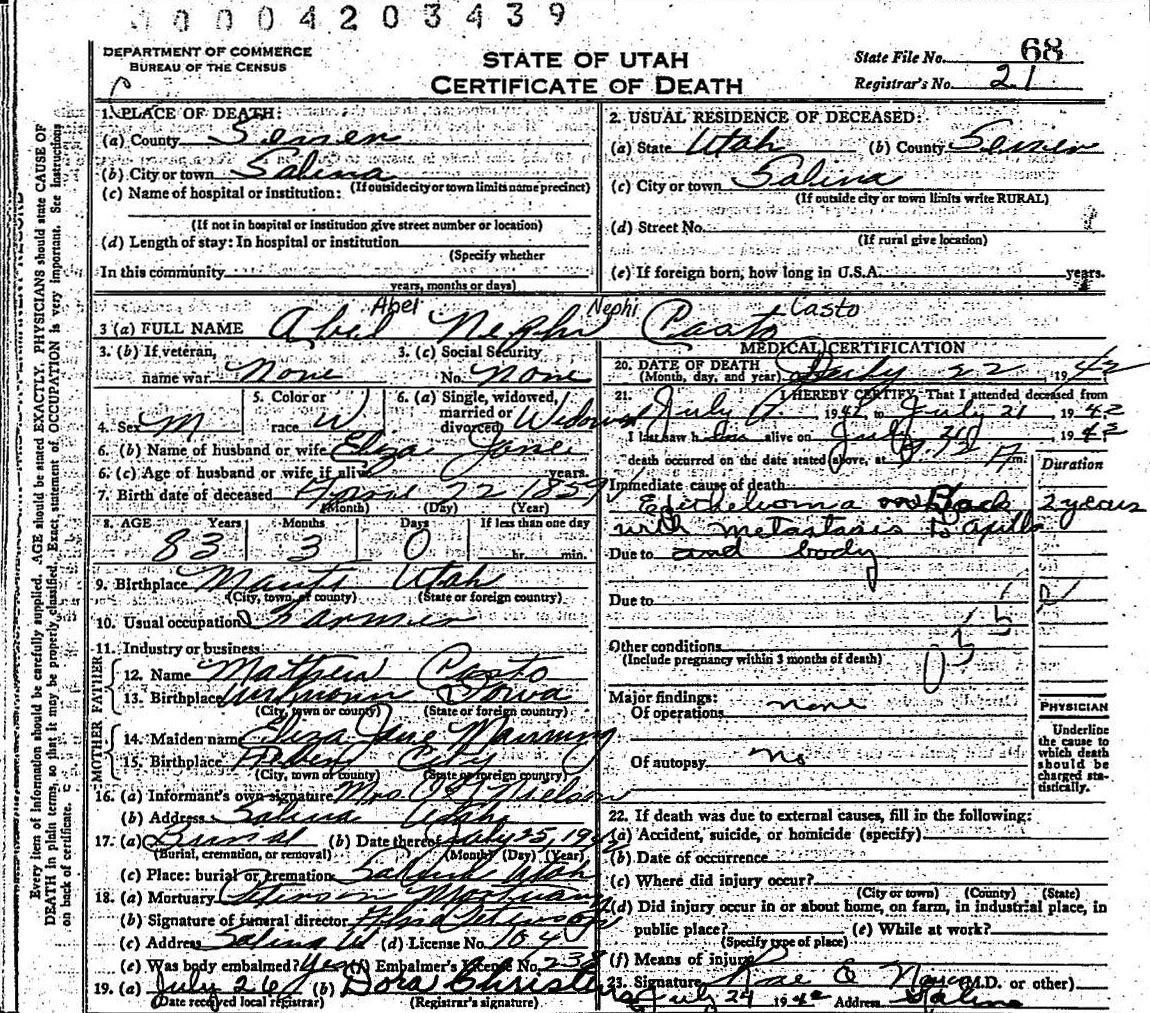 0004203439
DEPARTMENT OF COMMERCE
BUREAU OF THE CENSUS
STATE OF UTAH
CERTIFICATE OF DEATH
State File No. 68
Registrar's No. 21
Every item of information should be carefully supplied. AGE should be stated EXACTLY. PHYSICIANS should state CAUSE OF
DEATH in plain terms, so that it may be properly classified. Exact statement of OCCUPATION is very important. See instructions
on back of certificate.
1. PLACE OF DEATH:
(a) County Sevier
(b) City or town Salina
(If outside city or town limits name precinct)
(c) Name of hospital or institution:
(If not in hospital or institution give street number or location)
(d) Length of stay: In hospital or institution
(Specify whether
In this community
years, months or days)
2. USUAL RESIDENCE OF DECEASED:
(a) State Utah (b) County Sevier
(c) City or town Salina
(If outside city or town limits write RURAL)
(d) Street No.
(If rural give location)
(e) If foreign born, how long in U.S.A. years.
Abel Nephi Casto
3 (a) FULL NAME Abel Nephi Casto
3. (b) If veteran, name war None
3. (c) Social Security No. None
4. Sex M
5. Color or race W
6. (a) Single, widowed, married or divorced Widowed
6. (b) Name of husband or wife Eliza Jane
6. (c) Age of husband or wife if alive years.
7. Birth date of deceased April 22 1859
(Month) (Day) (Year)
8. AGE Years Months Days If less than one day
83 3 0 hr. min.
9. Birthplace Manti Utah
(City, town or county) (State or foreign country)
10. Usual occupation Farmer
11. Industry or business
FATHER
12. Name Mathew Casto
13. Birthplace Iowa
(City, town or county) (State or foreign country)
MOTHER
14. Maiden name Eliza Jane Manning
15. Birthplace City
(City, town or county) (State or foreign country)
16. (a) Informant's own signature Mrs. Nielson
(b) Address Salina Utah
17. (a) Burial (b) Date thereof July 25, 1942
(Burial, cremation, or removal) (Month) (Day) (Year)
(c) Place: burial or cremation Salina Utah
18. (a) Mortuary Mortuary
(b) Signature of funeral director
(c) Address Salina U (d) License No. 104
(e) Was body embalmed? Yes (f) Embalmer's License No. 238
19. (a) July 26 (b) Dora
(Date received local registrar) (Registrar's signature)
MEDICAL CERTIFICATION
20. DATE OF DEATH
(Month, day, and year) July 22, 1942
21. I HEREBY CERTIFY, That I attended deceased from
July 17, 1942, to July 21, 1942
I last saw h alive on July, 1942
death occurred on the date stated above, at m.
Immediate cause of death Duration
Epithelioma on Back 2 years
with metastasis to axilla
Due to and body
Due to
Other conditions
(Include pregnancy within 3 months of death)
055
Major findings:
Of operations none
Of autopsy No
PHYSICIAN
Underline
the cause to
which death
should be
charged sta-
tistically.
22. If death was due to external causes, fill in the following:
(a) Accident, suicide, or homicide (specify)
(b) Date of occurrence
(c) Where did injury occur?
(City or town) (County) (State)
(d) Did injury occur in or about home, on farm, in industrial place, in
public place? (e) While at work?
(Specify type of place)
(f) Means of injury
23. Signature Rae E (M.D. or other)
July 24 1942 Address Salina